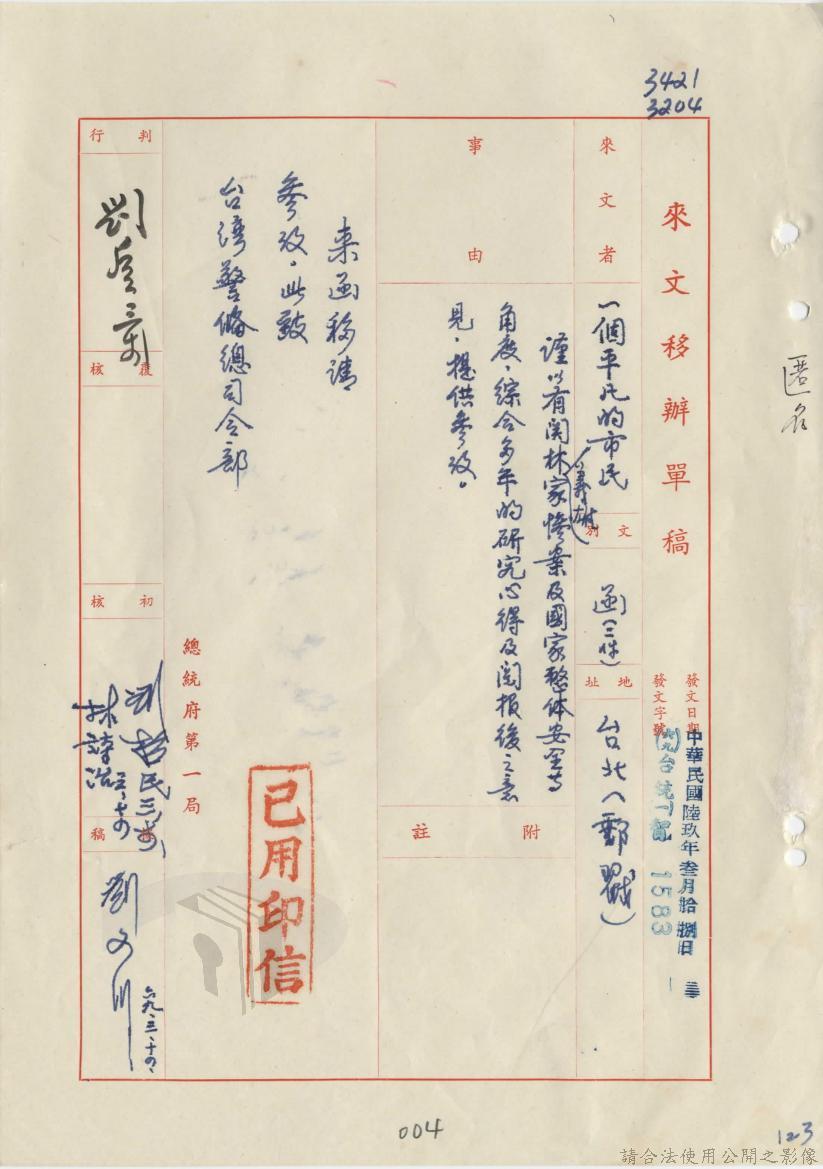 3421
3204
匿名
來文移辦單稿
發文日期
中華民國陸玖年叁月拾捌日
發文字號
台統(一)
1583
來文者
一個平凡的市民
文別
函(三件)
地址
台北(郵戳)
事由
謹以有關林家(義雄)慘案及國家整体安全等
角度,綜合多年的研究心得及閱报後之意
見,提供參攷。
附註
来函移請
參攷。此致
台灣警備總司令部
總統府第一局
已用印信
判行
覆核
初核
三、十四
擬稿
劉
六九、三、十四、
004
123
請合法使用公開之影像